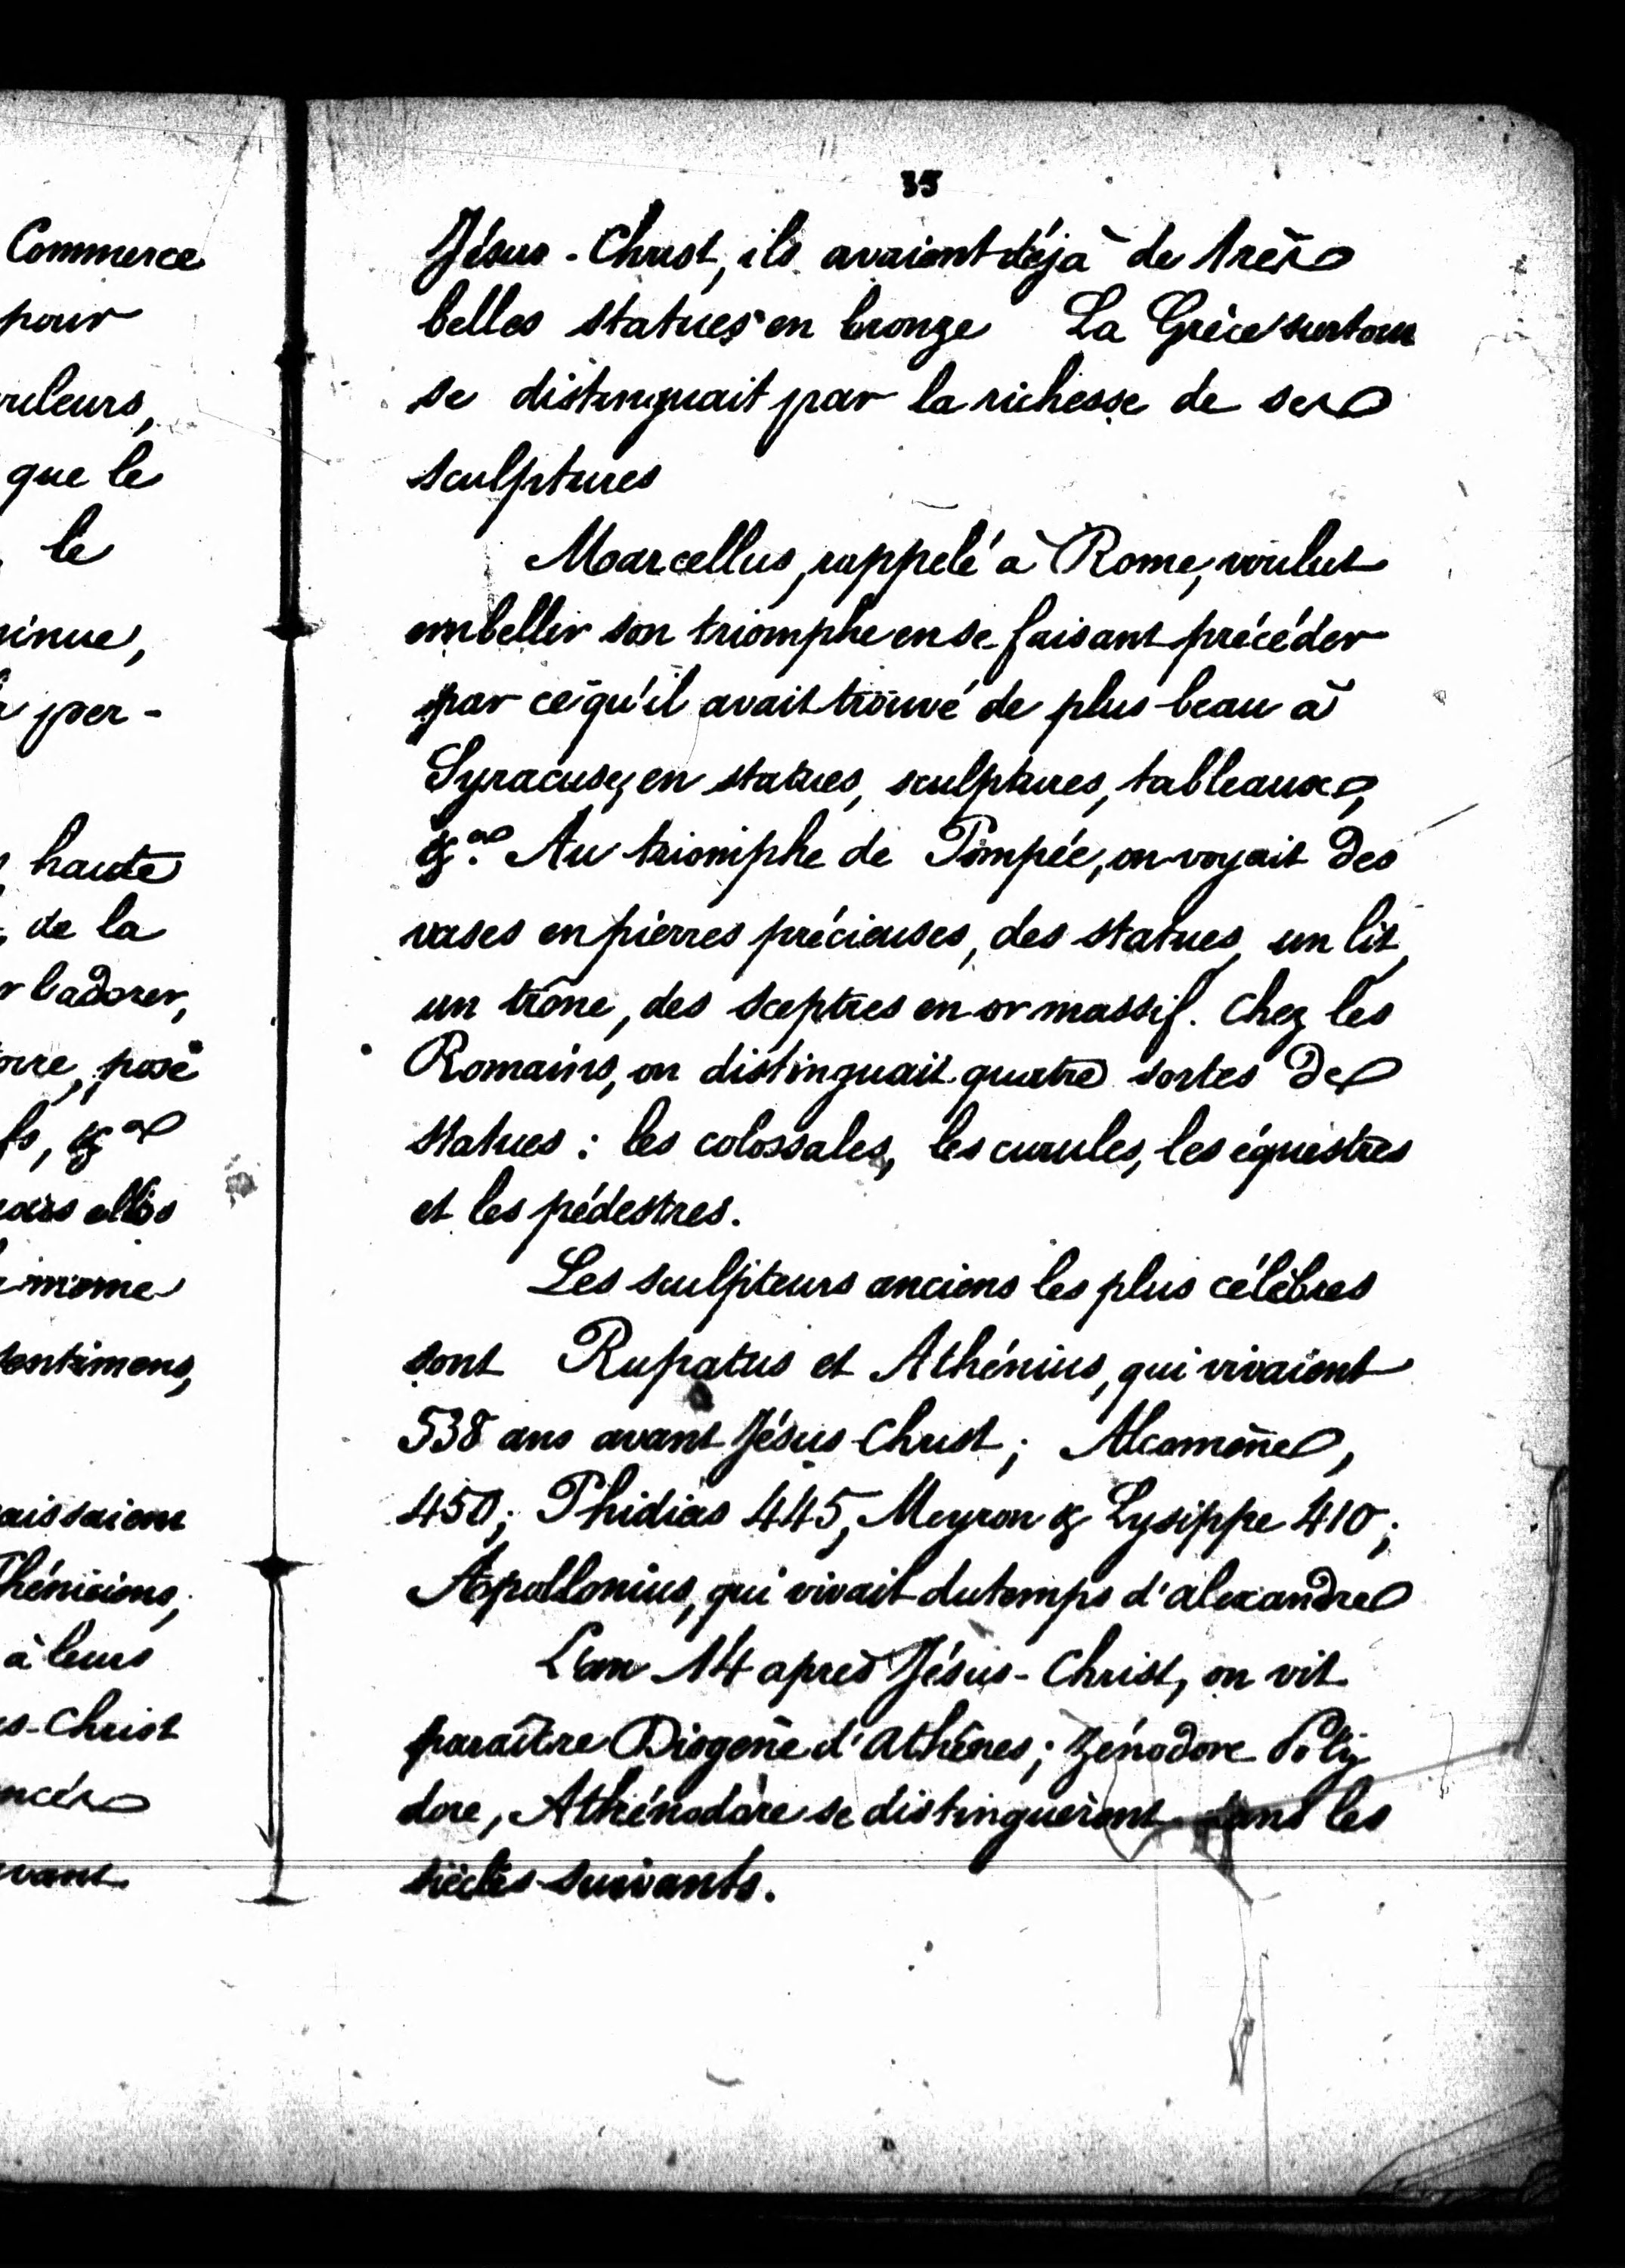 Commerce
pour
uleurs,
que le
le
inue,
per-
haute
de la
r l'adorer,
rre, posé
fs, &a
ais elles
morne
sentimens,
aissaient
Phéniciens,
à leurs
s-Christ
ncés
vant
35
Jésus-Christ, ils avaient déjà de très
belles statues en bronze La Grèce surtout
se distinguait par la richesse de ses
sculptures
Marcellus, rappelé à Rome, voulut
embellir son triomphe en se faisant précéder
par ce qu'il avait trouvé de plus beau à
Syracuse, en statues, sculptures, tableaux,
&a. Au triomphe de Pompée, on voyait des
vases en pierres précieuses, des statues, un lit,
un trône, des sceptres en or massif. Chez les
Romains, on distinguait quatre sortes de
statues : les colossales, les curules, les équestres
et les pédestres.
Les sculpteurs anciens les plus célèbres
sont Rupatus et Athénius, qui vivaient
538 ans avant Jésus-Christ; Alcamène,
450; Phidias 445, Meyron & Lysippe 410;
Apollonius, qui vivait du temps d'alexandre
L'an 14 après Jésus-Christ, on vit
paraître Diogène d'Athènes; Zénodore Poly
dore, Athénodore se distinguèrent dans les
siècles suivants.